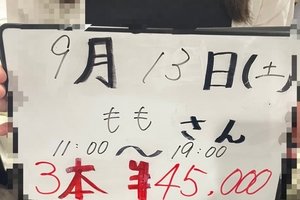 9月 13日(土)
ももさん
11:00〜19:00
3本 ¥45,000